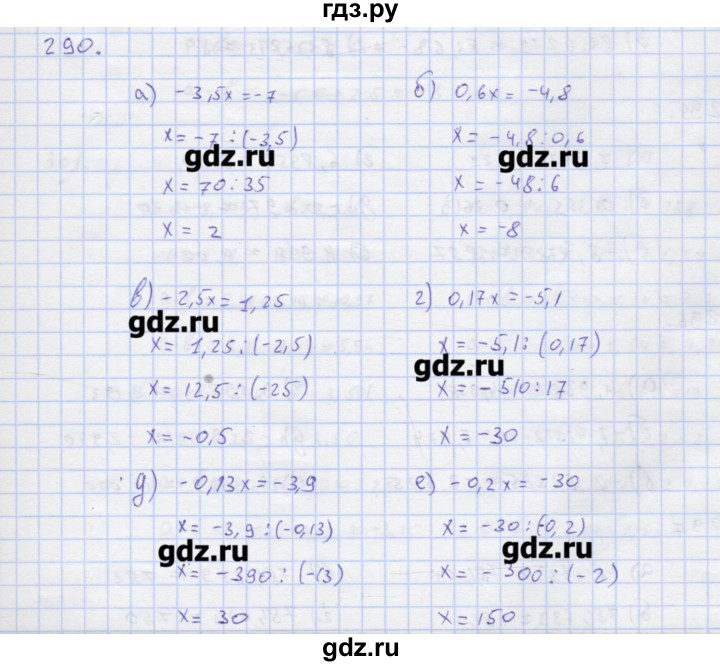 гдз.ру
290.
а) -3,5x=-7
x=-7:(-3,5)
gdz.ru
x=70:35
x=2
б) 0,6x=-4,8
x=-4,8:0,6
gdz.ru
x=-48:6
x=-8
в) -2,5x=1,25
gdz.ru
x=1,25:(-2,5)
x=12,5:(-25)
x=-0,5
г) 0,17x=-5,1
x=-5,1:(0,17)
gdz.ru
x=-510:17
x=-30
д) -0,13x=-3,9
x=-3,9:(-0,13)
gdz.ru
x=-390:(-13)
x=30
е) -0,2x=-30
x=-30:(-0,2)
gdz.ru
x=-300:(-2)
x=150
gdz.ru